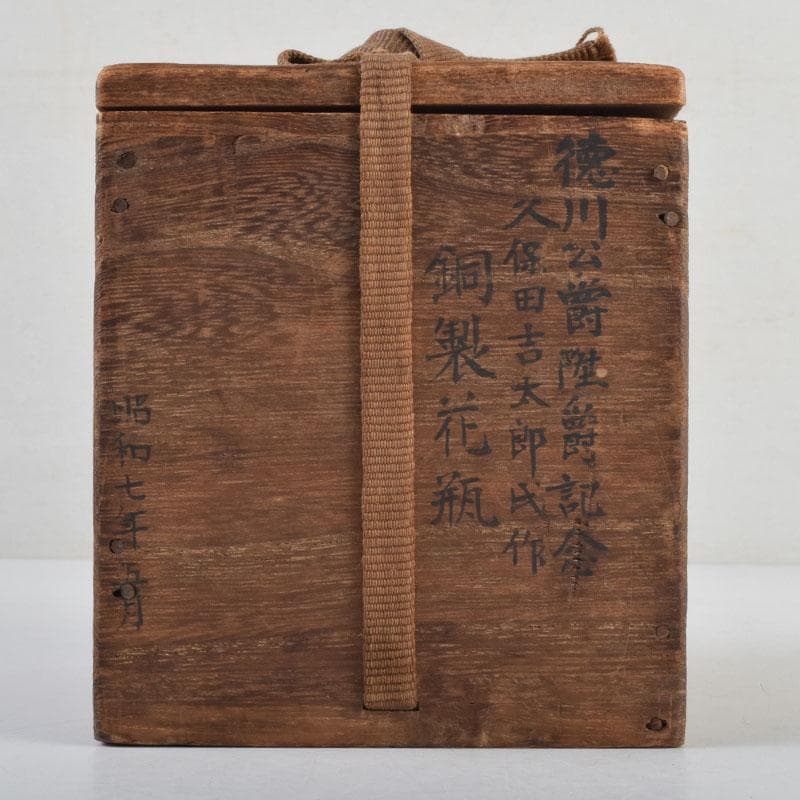 徳川公爵陞爵記念
久保田吉太郎氏作
銅製花瓶
昭和七年五月